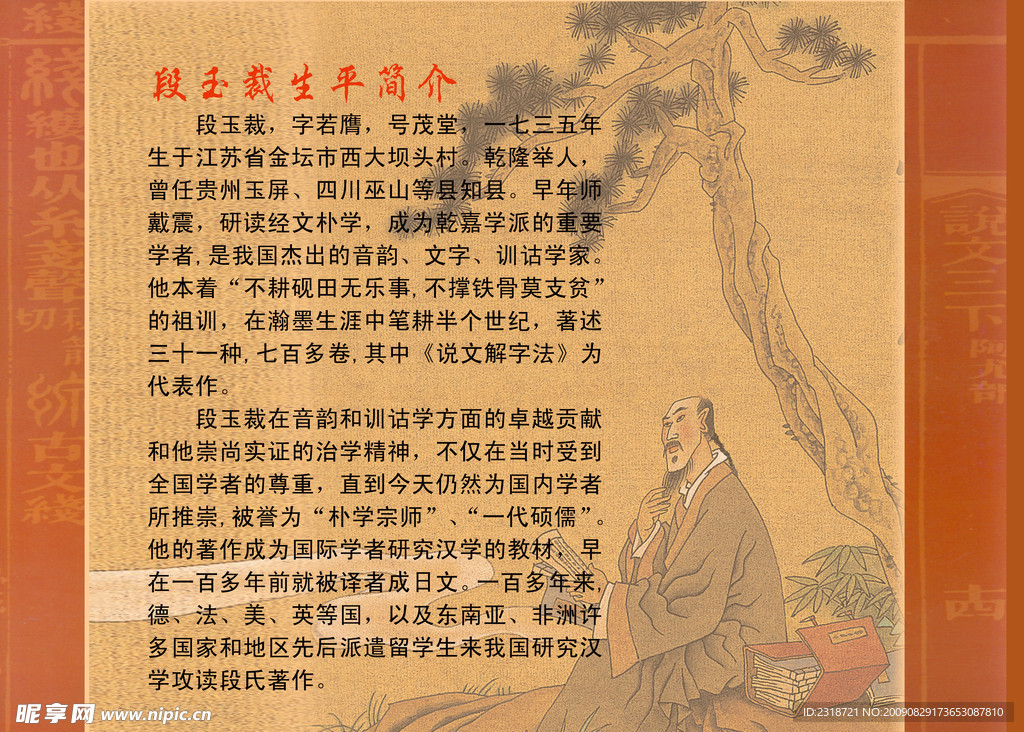 段玉裁生平简介
段玉裁，字若膺，号茂堂，一七三五年
生于江苏省金坛市西大坝头村。乾隆举人，
曾任贵州玉屏、四川巫山等县知县。早年师
戴震，研读经文朴学，成为乾嘉学派的重要
学者，是我国杰出的音韵、文字、训诂学家。
他本着“不耕砚田无乐事，不撑铁骨莫支贫”
的祖训，在瀚墨生涯中笔耕半个世纪，著述
三十一种，七百多卷，其中《说文解字法》为
代表作。
段玉裁在音韵和训诂学方面的卓越贡献
和他崇尚实证的治学精神，不仅在当时受到
全国学者的尊重，直到今天仍然为国内学者
所推崇，被誉为“朴学宗师”、“一代硕儒”。
他的著作成为国际学者研究汉学的教材，早
在一百多年前就被译者成日文。一百多年来，
德、法、美、英等国，以及东南亚、非洲许
多国家和地区先后派遣留学生来我国研究汉
学攻读段氏著作。
昵享网 www.nipic.cn
ID:2318721 NO:20090829173653087810